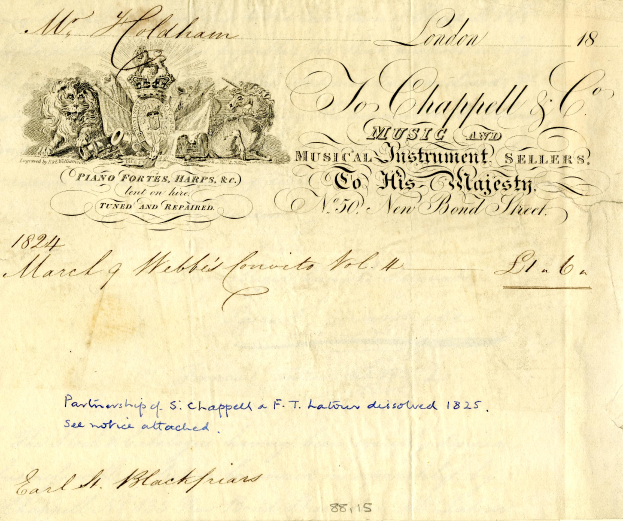 Mr. Holdham
London 18
To Chappell & Co.
MUSIC AND
MUSICAL Instrument SELLERS,
To His Majesty.
No. 50. New Bond Street.
PIANO FORTES, HARPS, &c.
lent on hire.
TUNED AND REPAIRED.
1824
March 9 Webbe's Convito Vol. 4 £1 " 6 "
Partnership of S. Chappell & F. T. Latour dissolved 1825.
See notice attached.
Earl St. Blackfriars
88.15